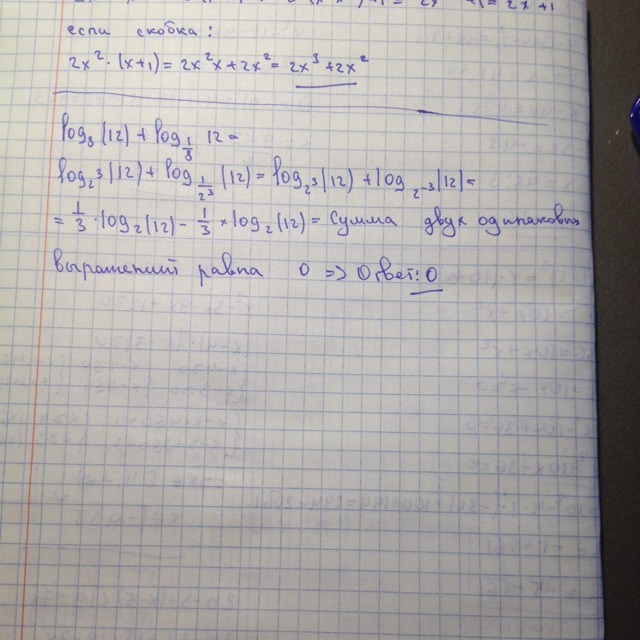 = 2x + 1
если скобка:
2x² · (x+1) = 2x²x + 2x² = 2x³ + 2x²
log₈ (12) + log_{1/8} 12 =
log_{2³} (12) + log_{1/2³} (12) = log_{2³} (12) + log_{2⁻³} (12) =
= 1/3 · log₂ (12) - 1/3 × log₂ (12) = Сумма двух одинаковых
выражений равна 0 => Ответ: 0